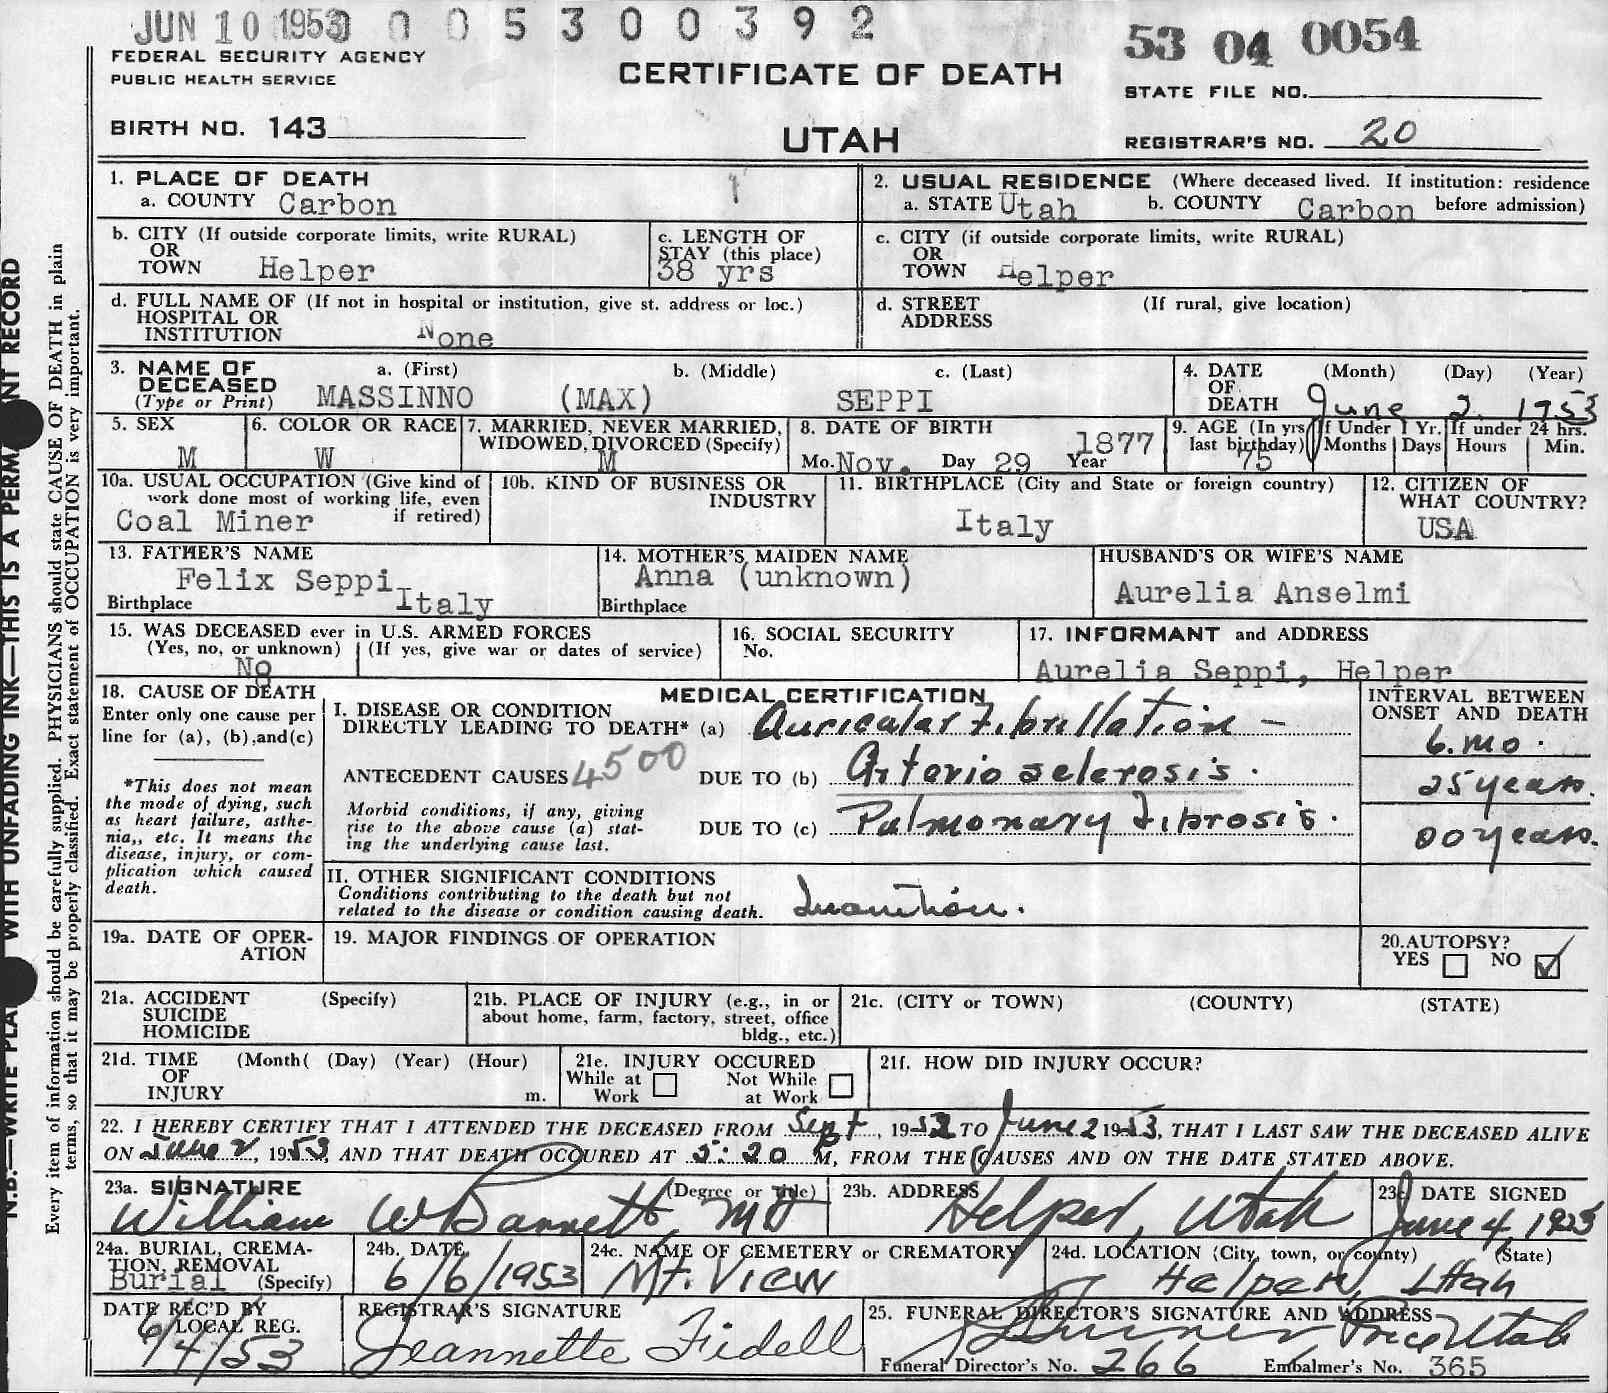 JUN 10 1953 0 0 5 3 0 0 3 9 2
53 04 0054
FEDERAL SECURITY AGENCY
PUBLIC HEALTH SERVICE
CERTIFICATE OF DEATH
STATE FILE NO.
BIRTH NO. 143
UTAH
REGISTRAR'S NO. 20
1. PLACE OF DEATH
a. COUNTY Carbon
2. USUAL RESIDENCE (Where deceased lived. If institution: residence
a. STATE Utah b. COUNTY Carbon before admission)
b. CITY (If outside corporate limits, write RURAL)
OR
TOWN Helper
c. LENGTH OF
STAY (this place)
38 yrs
c. CITY (if outside corporate limits, write RURAL)
OR
TOWN Helper
d. FULL NAME OF (If not in hospital or institution, give st. address or loc.)
HOSPITAL OR
INSTITUTION None
d. STREET (If rural, give location)
ADDRESS
3. NAME OF a. (First) b. (Middle) c. (Last)
DECEASED
(Type or Print) MASSINNO (MAX) SEPPI
4. DATE (Month) (Day) (Year)
OF
DEATH June 2. 1953
5. SEX
M
6. COLOR OR RACE
W
7. MARRIED, NEVER MARRIED,
WIDOWED, DIVORCED (Specify)
M
8. DATE OF BIRTH
Mo. Nov. Day 29 Year 1877
9. AGE (In yrs
last birthday)
75
If Under 1 Yr.
Months Days
If under 24 hrs.
Hours Min.
10a. USUAL OCCUPATION (Give kind of
work done most of working life, even
if retired)
Coal Miner
10b. KIND OF BUSINESS OR
INDUSTRY
11. BIRTHPLACE (City and State or foreign country)
Italy
12. CITIZEN OF
WHAT COUNTRY?
USA
13. FATHER'S NAME
Felix Seppi
Birthplace Italy
14. MOTHER'S MAIDEN NAME
Anna (unknown)
Birthplace
HUSBAND'S OR WIFE'S NAME
Aurelia Anselmi
15. WAS DECEASED ever in U.S. ARMED FORCES
(Yes, no, or unknown) (If yes, give war or dates of service)
No
16. SOCIAL SECURITY
No.
17. INFORMANT and ADDRESS
Aurelia Seppi, Helper
18. CAUSE OF DEATH
Enter only one cause per
line for (a), (b), and(c)
*This does not mean
the mode of dying, such
as heart failure, asthe-
nia,, etc. It means the
disease, injury, or com-
plication which caused
death.
MEDICAL CERTIFICATION
I. DISEASE OR CONDITION
DIRECTLY LEADING TO DEATH* (a) Auricular Fibrillation -
ANTECEDENT CAUSES 4500 DUE TO (b) Arterio sclerosis.
Morbid conditions, if any, giving
rise to the above cause (a) stat-
ing the underlying cause last.
DUE TO (c) Pulmonary Fibrosis.
INTERVAL BETWEEN
ONSET AND DEATH
6. mo.
25 years.
years.
II. OTHER SIGNIFICANT CONDITIONS
Conditions contributing to the death but not
related to the disease or condition causing death. Inanition.
19a. DATE OF OPER-
ATION
19. MAJOR FINDINGS OF OPERATION
20. AUTOPSY?
YES NO
21a. ACCIDENT (Specify)
SUICIDE
HOMICIDE
21b. PLACE OF INJURY (e.g., in or
about home, farm, factory, street, office
bldg., etc.)
21c. (CITY or TOWN) (COUNTY) (STATE)
21d. TIME (Month( (Day) (Year) (Hour)
OF
INJURY m.
21e. INJURY OCCURED
While at Not While
Work at Work
21f. HOW DID INJURY OCCUR?
22. I HEREBY CERTIFY THAT I ATTENDED THE DECEASED FROM Sept, 1952 TO June 2 1953, THAT I LAST SAW THE DECEASED ALIVE
ON June 2, 1953, AND THAT DEATH OCCURED AT 5:20 P M, FROM THE CAUSES AND ON THE DATE STATED ABOVE.
23a. SIGNATURE (Degree or Title)
William W Barrett, MD
23b. ADDRESS
Helper, Utah
23c. DATE SIGNED
June 4, 1953
24a. BURIAL, CREMA-
TION, REMOVAL
Burial (Specify)
24b. DATE
6/6/1953
24c. NAME OF CEMETERY or CREMATORY
Mt. View
24d. LOCATION (City, town, or county) (State)
Helper, Utah
DATE REC'D BY
LOCAL REG.
6/4/53
REGISTRAR'S SIGNATURE
Jeannette Fidell
25. FUNERAL DIRECTOR'S SIGNATURE AND ADDRESS
Price Utah
Funeral Director's No. 266 Embalmer's No. 365
N.B.—WRITE PLA WITH UNFADING INK—THIS IS A PERM NT RECORD
Every item of information should be carefully supplied. PHYSICIANS should state CAUSE OF DEATH in plain
terms, so that it may be properly classified. Exact statement of OCCUPATION is very important.